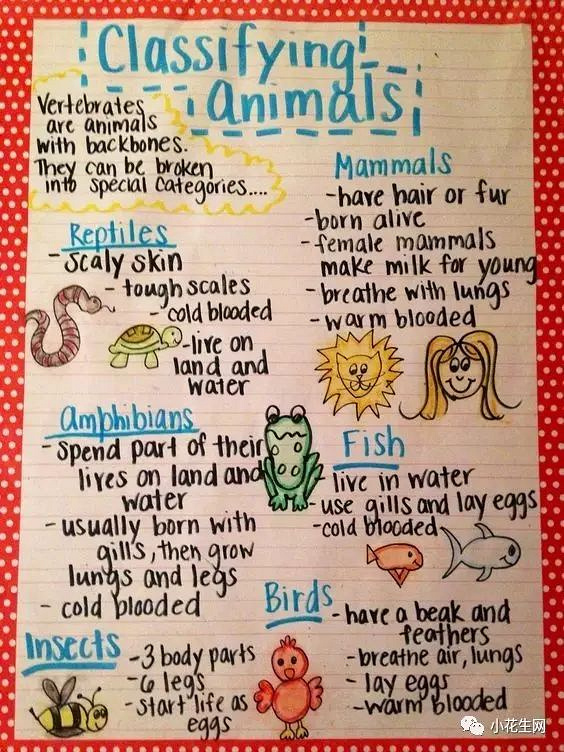 Classifying
animals
Vertebrates
are animals
with backbones.
They can be broken
into special categories....
Mammals
-have hair or fur
-born alive
-female mammals
make milk for young
-breathe with lungs
-warm blooded
Reptiles
-scaly skin
-tough scales
-cold blooded
-live on
land and
water
Amphibians
-spend part of their
lives on land and
water
-usually born with
gills, then grow
lungs and legs
- cold blooded
Fish
- live in water
-use gills and lay eggs
-cold blooded
Birds
-have a beak and
feathers
-breathe air, lungs
-lay eggs
-warm blooded
Insects
-3 body parts
-6 legs
-start life as
eggs
小花生网